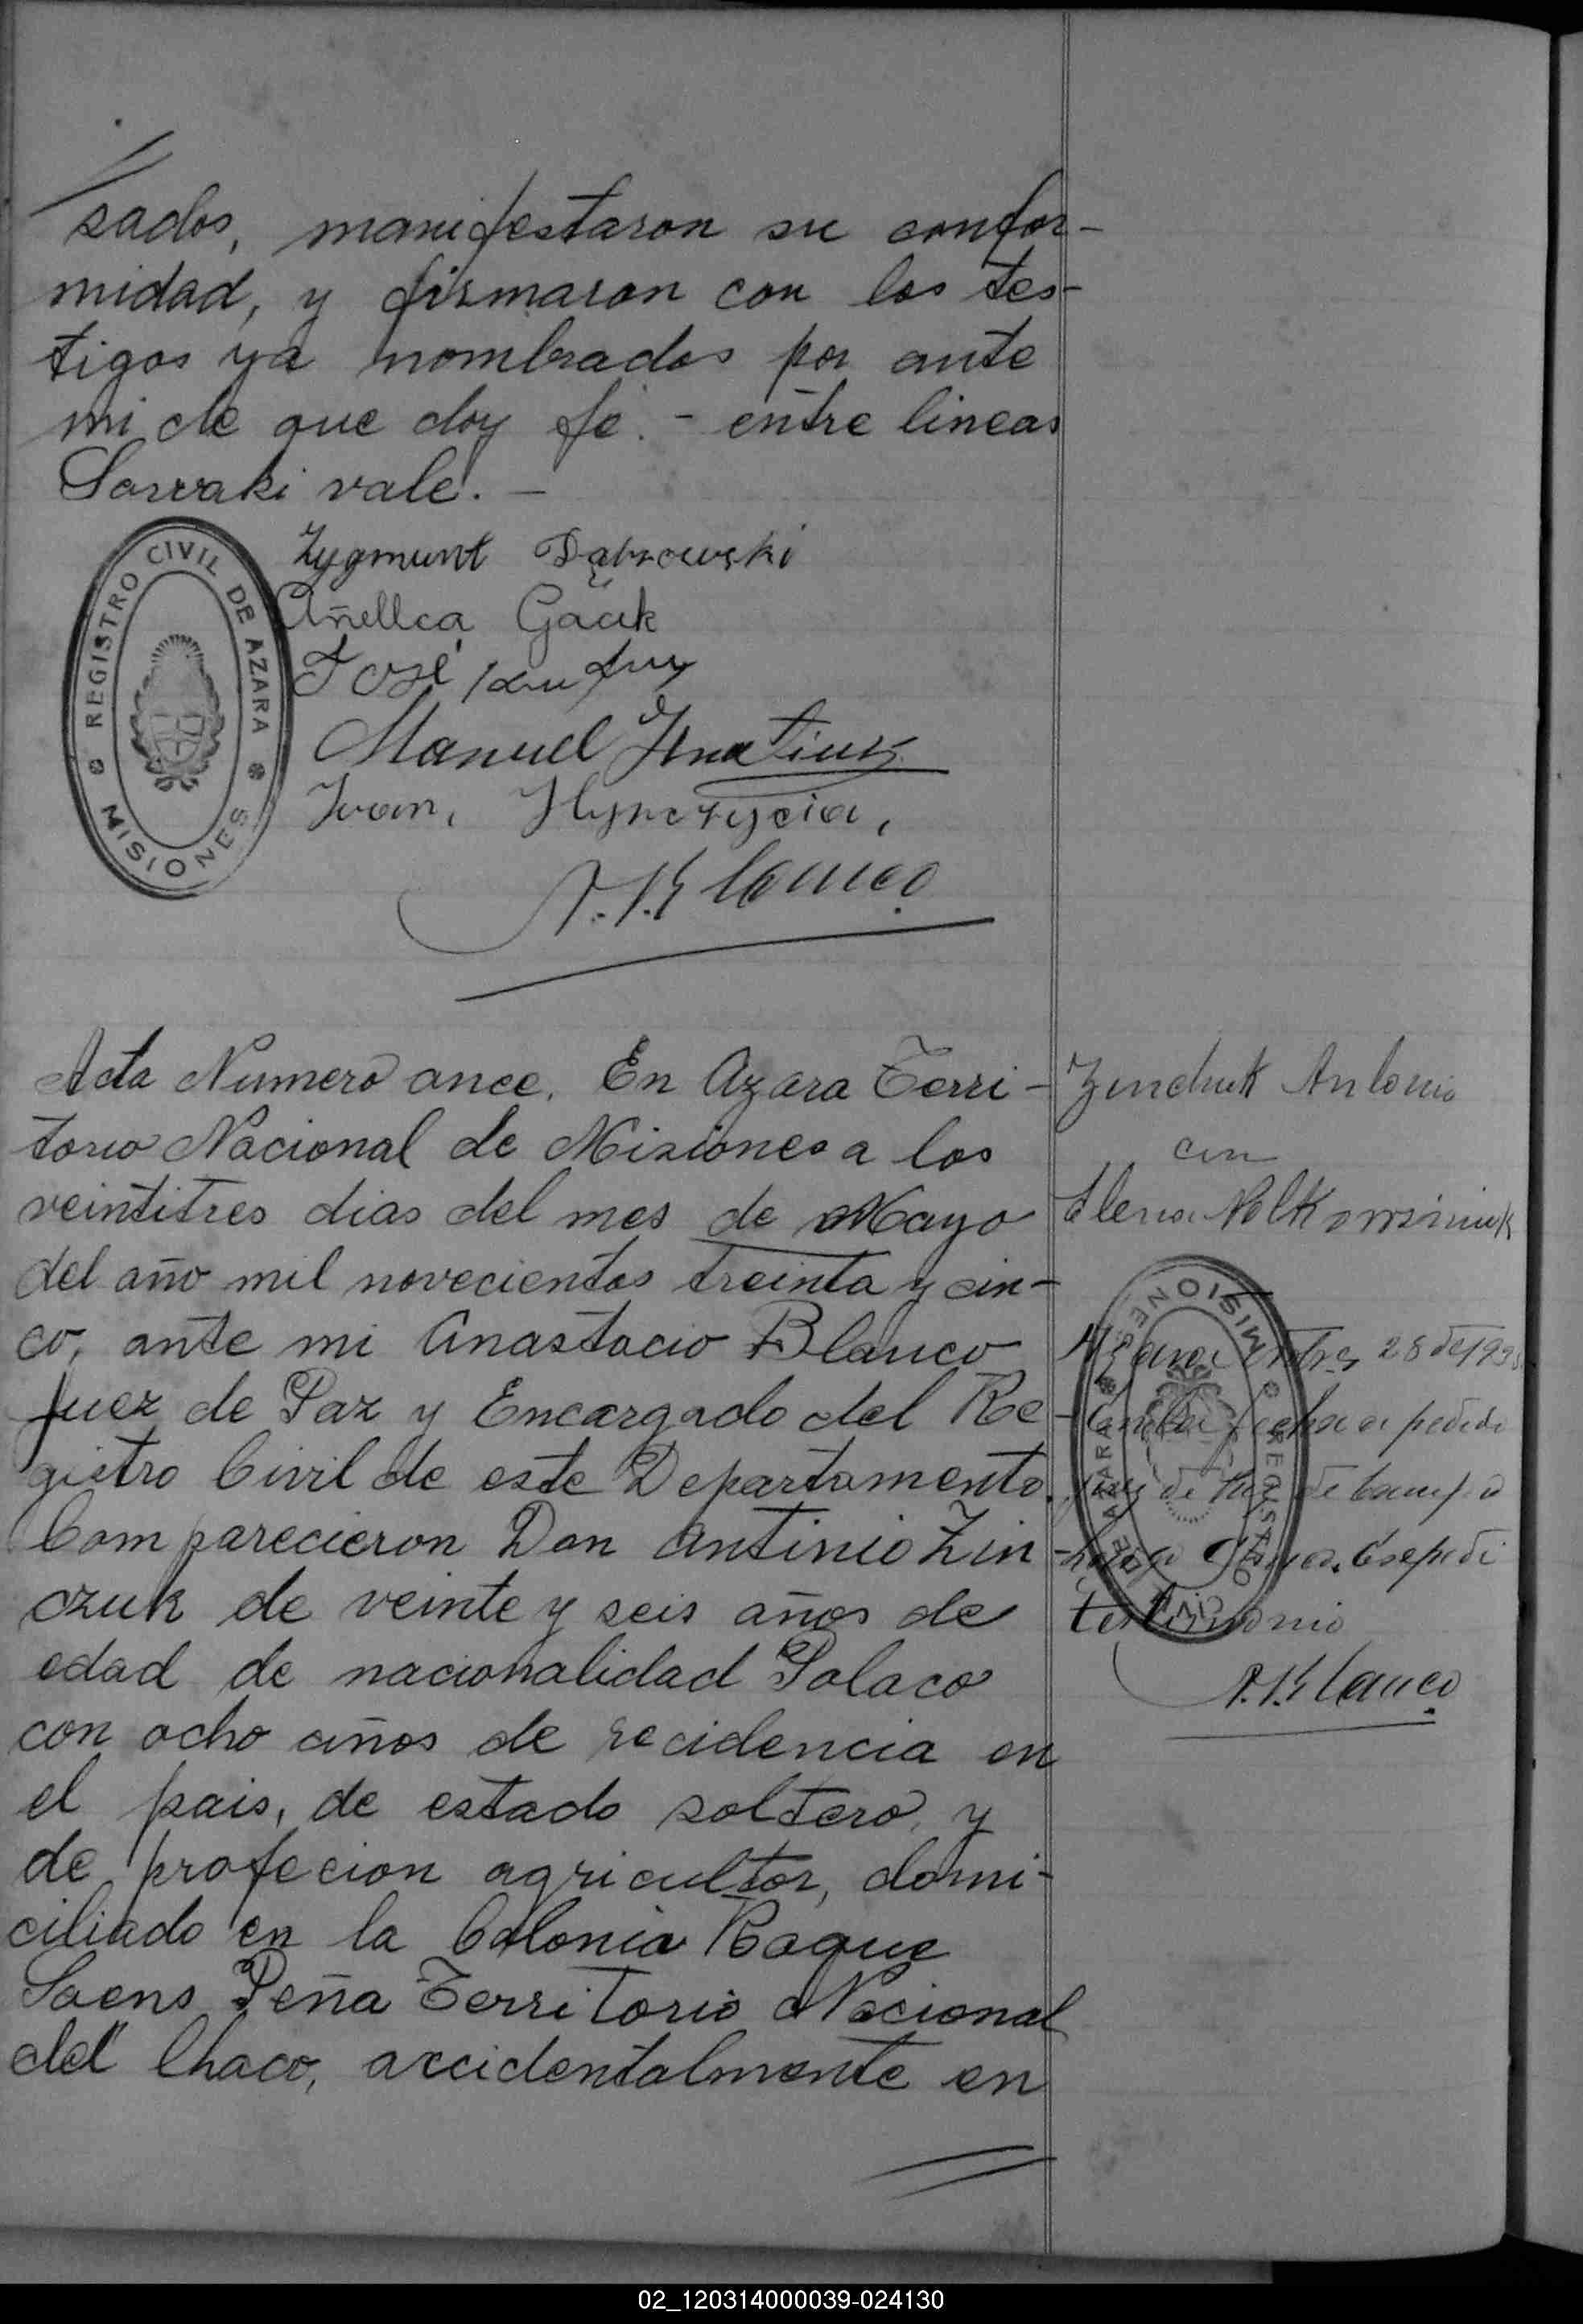 sados, manifestaron su confor-
midad, y firmaron con los tes-
tigos ya nombrados por ante
mi de que doy fé. - entre lineas
vale. -
REGISTRO CIVIL DE AZARA
MISIONES
Zygmunt Dąbrowski
José
Manuel
A. Blanco
Acta Numero once. En Azara Terri-
torio Nacional de Misiones a los
veintitres dias del mes de Mayo
del año mil novecientos treinta y cin-
co, ante mi Anastacio Blanco
Juez de Paz y Encargado del Re-
gistro Civil de este Departamento.
Comparecieron Don Antinio Zin-
czuk de veinte y seis años de
edad de nacionalidad Polaco
con ocho años de recidencia en
el pais, de estado soltero, y
de profecion agricultor, domi-
ciliado en la Colonia Roque
Saens Peña Territorio Nacional
del Chaco, accidentalmente en
Antonio
con
Elena
REGISTRO CIVIL DE AZARA
MISIONES
Azara 28 de
fecha a pedido
testimonio
A. Blanco
02_120314000039-024130